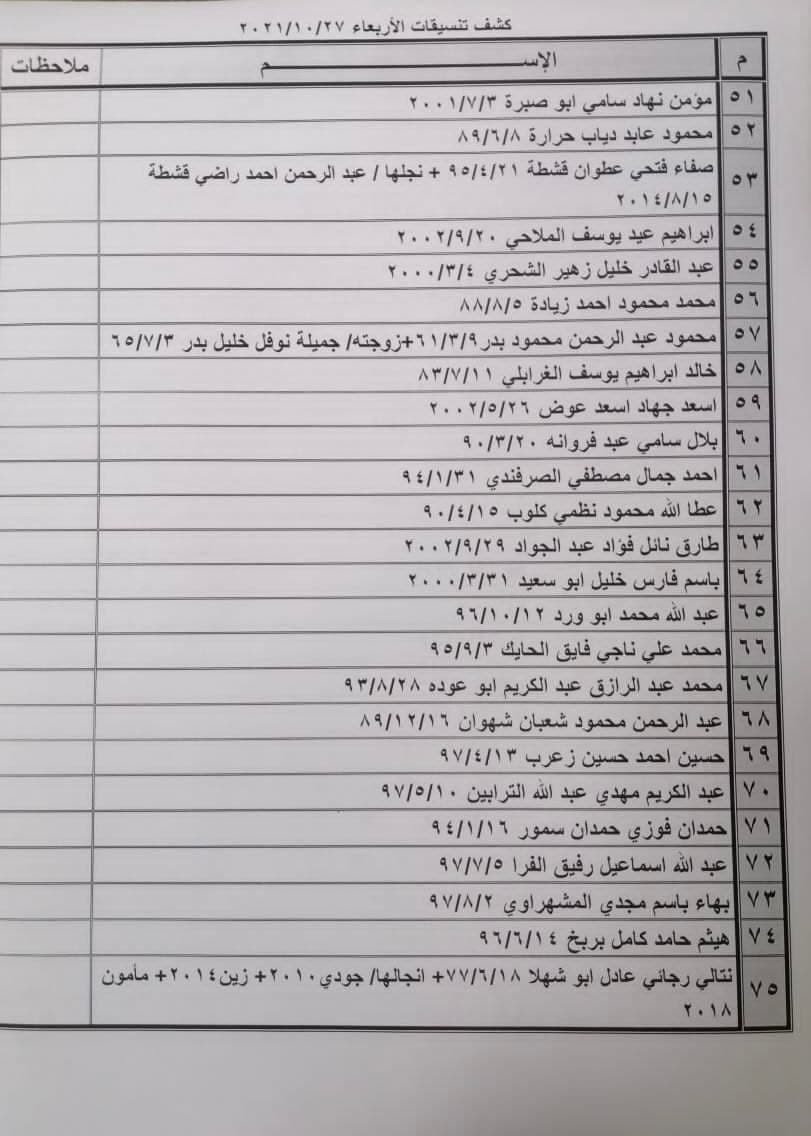 كشف تنسيقات الأربعاء ٢٠٢١/١٠/٢٧
م الإســـــــــم ملاحظات
٥١ مؤمن نهاد سامي ابو صبرة ٢٠٠١/٧/٣
٥٢ محمود عابد دياب حرارة ٨٩/٦/٨
٥٣ صفاء فتحي عطوان قشطة ٩٥/٤/٢١ + نجلها / عبد الرحمن احمد راضي قشطة
٢٠١٤/٨/١٥
٥٤ ابراهيم عيد يوسف الملاحي ٢٠٠٢/٩/٢٠
٥٥ عبد القادر خليل زهير الشحري ٢٠٠٠/٣/٤
٥٦ محمد محمود احمد زيادة ٨٨/٨/٥
٥٧ محمود عبد الرحمن محمود بدر ٦١/٣/٩+زوجته/ جميلة نوفل خليل بدر ٦٥/٧/٣
٥٨ خالد ابراهيم يوسف الغرابلي ٨٣/٧/١١
٥٩ اسعد جهاد اسعد عوض ٢٠٠٢/٥/٢٦
٦٠ بلال سامي عبد فروانه ٩٠/٣/٢٠
٦١ احمد جمال مصطفي الصرفندي ٩٤/١/٣١
٦٢ عطا الله محمود نظمي كلوب ٩٠/٤/١٥
٦٣ طارق نائل فؤاد عبد الجواد ٢٠٠٢/٩/٢٩
٦٤ باسم فارس خليل ابو سعيد ٢٠٠٠/٣/٣١
٦٥ عبد الله محمد ابو ورد ٩٦/١٠/١٢
٦٦ محمد علي ناجي فايق الحايك ٩٥/٩/٣
٦٧ محمد عبد الرازق عبد الكريم ابو عوده ٩٣/٨/٢٨
٦٨ عبد الرحمن محمود شعبان شهوان ٨٩/١٢/١٦
٦٩ حسين احمد حسين زعرب ٩٧/٤/١٣
٧٠ عبد الكريم مهدي عبد الله الترابين ٩٧/٥/١٠
٧١ حمدان فوزي حمدان سمور ٩٤/١/١٦
٧٢ عبد الله اسماعيل رفيق الفرا ٩٧/٧/٥
٧٣ بهاء باسم مجدي المشهراوي ٩٧/٨/٢
٧٤ هيثم حامد كامل بربخ ٩٦/٦/١٤
٧٥ نتالي رجائي عادل ابو شهلا ٧٧/٦/١٨+ انجالها/ جودي٢٠١٠+ زين٢٠١٤+ مأمون
٢٠١٨